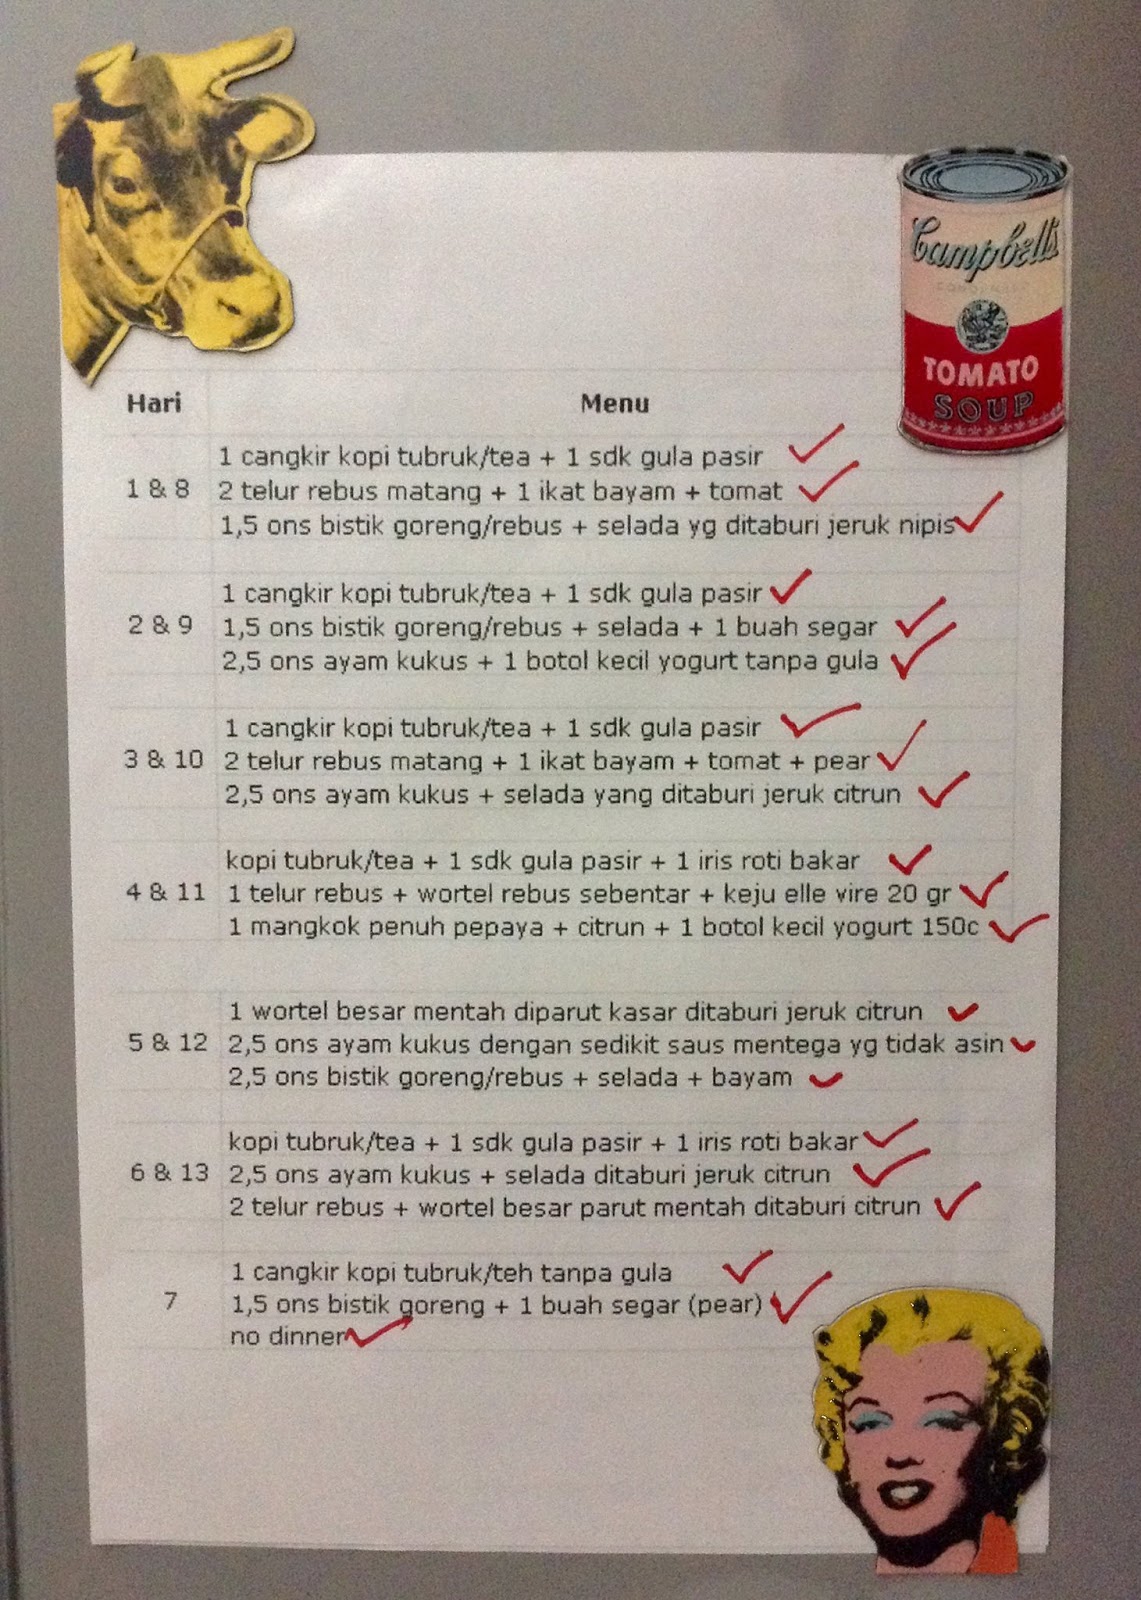 Campbell's
CONDENSED
TOMATO
SOUP
Hari Menu
1 cangkir kopi tubruk/tea + 1 sdk gula pasir
1 & 8 2 telur rebus matang + 1 ikat bayam + tomat
1,5 ons bistik goreng/rebus + selada yg ditaburi jeruk nipis
1 cangkir kopi tubruk/tea + 1 sdk gula pasir
2 & 9 1,5 ons bistik goreng/rebus + selada + 1 buah segar
2,5 ons ayam kukus + 1 botol kecil yogurt tanpa gula
1 cangkir kopi tubruk/tea + 1 sdk gula pasir
3 & 10 2 telur rebus matang + 1 ikat bayam + tomat + pear
2,5 ons ayam kukus + selada yang ditaburi jeruk citrun
kopi tubruk/tea + 1 sdk gula pasir + 1 iris roti bakar
4 & 11 1 telur rebus + wortel rebus sebentar + keju elle vire 20 gr
1 mangkok penuh pepaya + citrun + 1 botol kecil yogurt 150c
1 wortel besar mentah diparut kasar ditaburi jeruk citrun
5 & 12 2,5 ons ayam kukus dengan sedikit saus mentega yg tidak asin
2,5 ons bistik goreng/rebus + selada + bayam
kopi tubruk/tea + 1 sdk gula pasir + 1 iris roti bakar
6 & 13 2,5 ons ayam kukus + selada ditaburi jeruk citrun
2 telur rebus + wortel besar parut mentah ditaburi citrun
1 cangkir kopi tubruk/teh tanpa gula
7 1,5 ons bistik goreng + 1 buah segar (pear)
no dinner